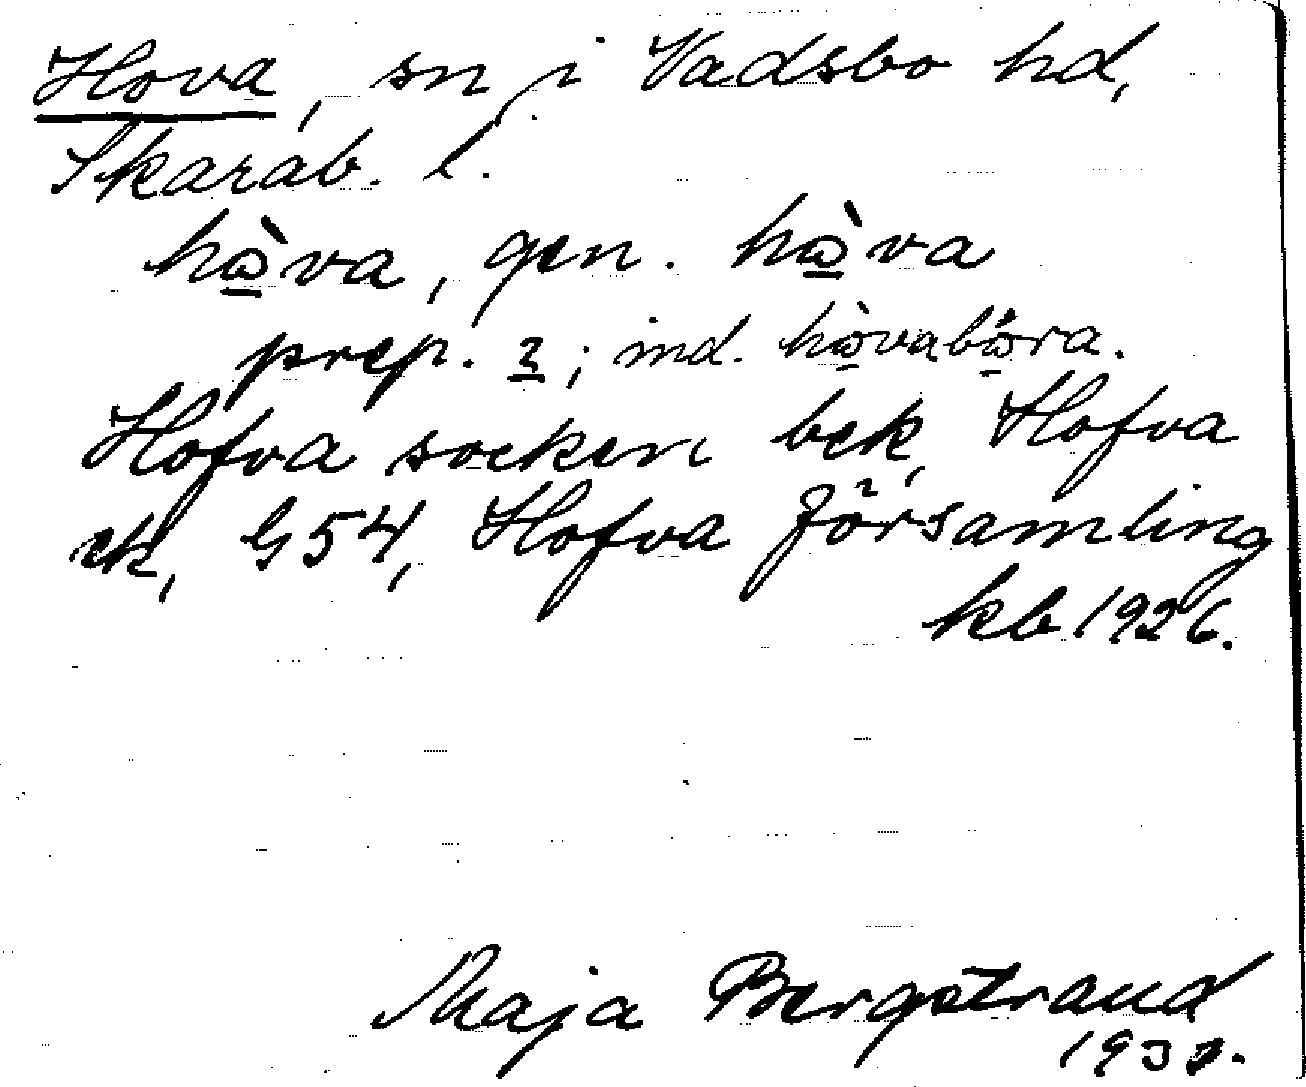 Hova, sn i Vadsbo hd,
Skarab. l.
hàva, gen. hàva
prep. ; ind. hàvabára.
Hofva socken bek, Hofva
ek, G54, Hofva församling
kb 1926.
Maja Bergstrand